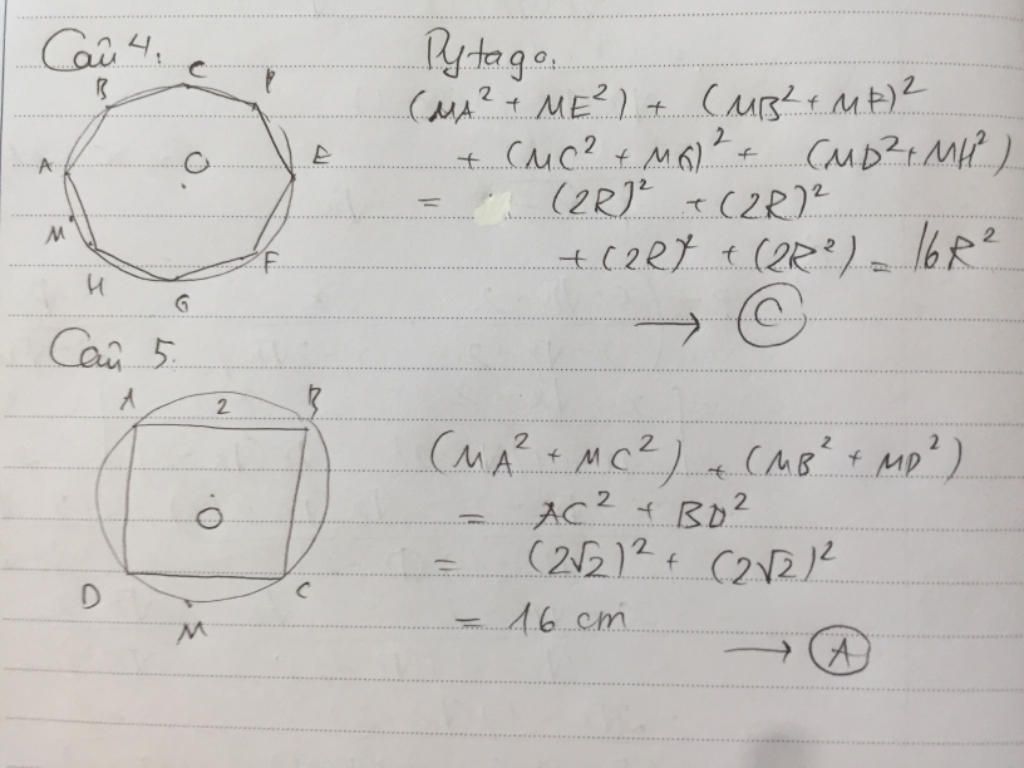 Câu 4.
Pytago.
B C D
A O E
M H G F
(MA² + ME²) + (MB² + MF)²
+ (MC² + MG)² + (MD² + MH²)
= (2R)² + (2R)²
+ (2R)² + (2R²) = 16R²
→ C
Câu 5.
A 2 B
O
D M C
(MA² + MC²) + (MB² + MD²)
= AC² + BD²
= (2√2)² + (2√2)²
= 16 cm
→ A